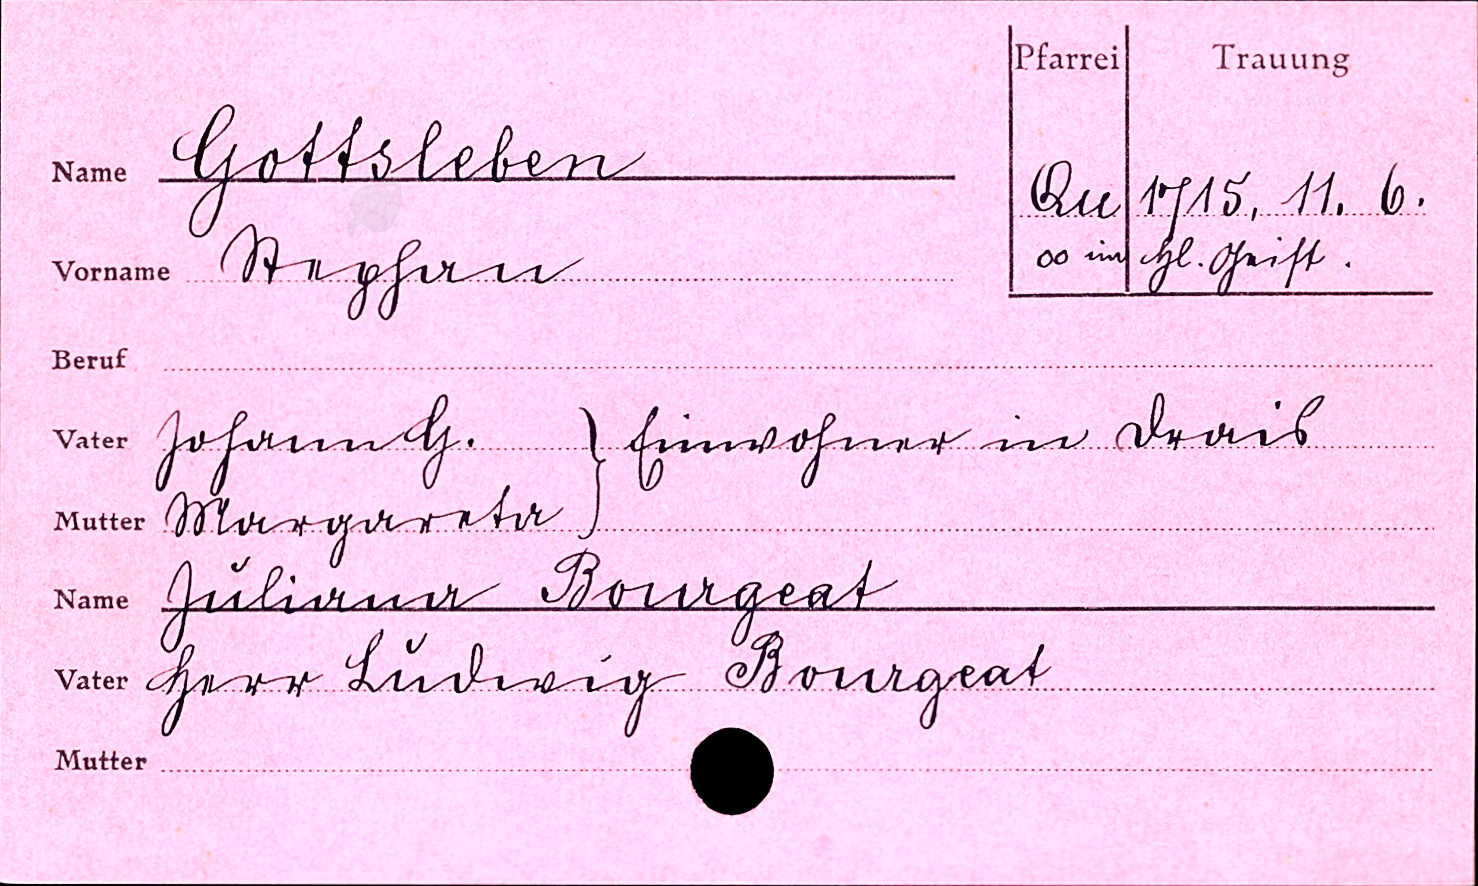 Pfarrei Trauung
Name Gottsleben
Qu 1715, 11. 6.
Vorname Stephan
oo im Hl. Geist.
Beruf
Vater Johann G. } Einwohner in Drais
Mutter Margareta
Name Juliana Bourgeat
Vater Herr Ludwig Bourgeat
Mutter